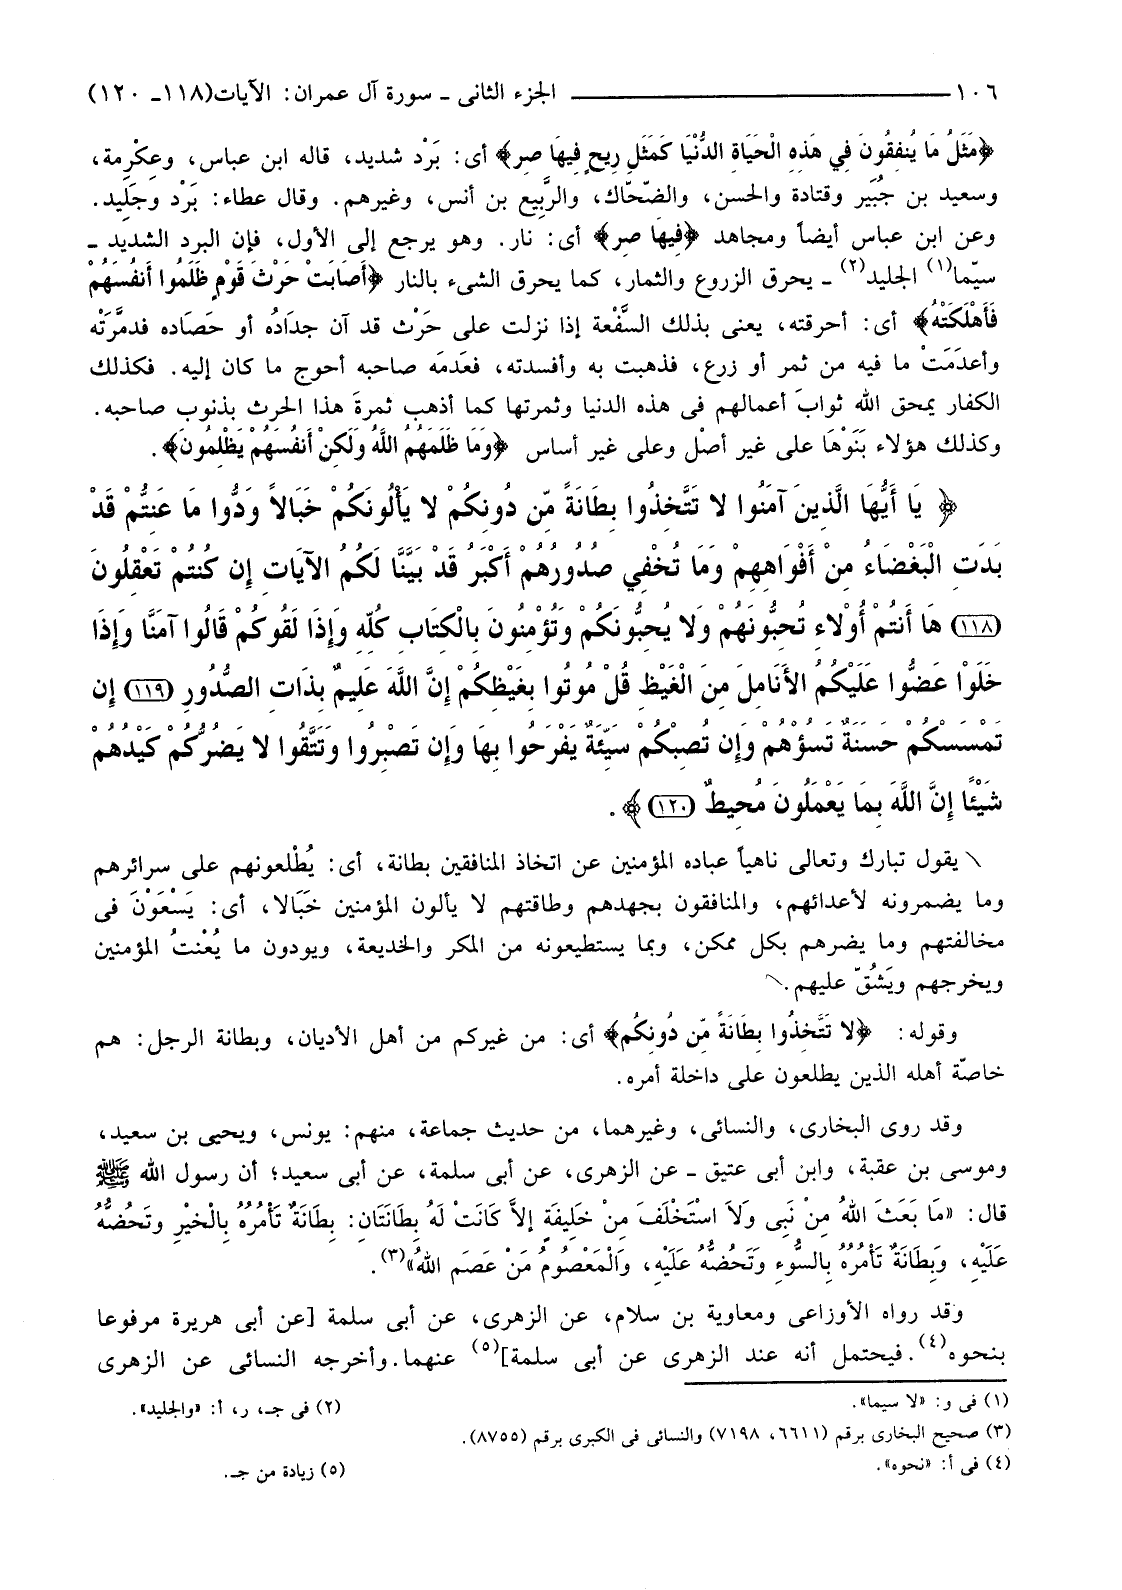 ١٠٦ ــــــــــــــــ الجزء الثانى ـ سورة آل عمران: الآيات(١١٨ـ ١٢٠)
﴿مَثَلُ مَا يُنفِقُونَ فِي هَذِهِ الْحَيَاةِ الدُّنْيَا كَمَثَلِ رِيحٍ فِيهَا صِر﴾ أى: بَرْد شديد، قاله ابن عباس، وعِكْرِمة،
وسعيد بن جُبَير وقتادة والحسن، والضّحّاك، والرَّبِيع بن أنس، وغيرهم. وقال عطاء: بَرْد وجَلِيد.
وعن ابن عباس أيضاً ومجاهد ﴿فِيهَا صِر﴾ أى: نار. وهو يرجع إلى الأول، فإن البرد الشديد ـ
سيّما(١) الجليد(٢) ـ يحرق الزروع والثمار، كما يحرق الشىء بالنار ﴿أَصَابَتْ حَرْثَ قَوْمٍ ظَلَمُوا أَنفُسَهُمْ
فَأَهْلَكَتْهُ﴾ أى: أحرقته، يعنى بذلك السَّفْعة إذا نزلت على حَرْث قد آن جدَادُه أو حَصَاده فدمَّرَتْه
وأعدَمَتْ ما فيه من ثمر أو زرع، فذهبت به وأفسدته، فعَدمَه صاحبه أحوج ما كان إليه. فكذلك
الكفار يمحق الله ثوابَ أعمالهم فى هذه الدنيا وثمرتها كما أذهب ثمرةَ هذا الحرث بذنوب صاحبه.
وكذلك هؤلاء بَنَوْهَا على غير أصْل وعلى غير أساس ﴿وَمَا ظَلَمَهُمُ اللَّهُ وَلَكِنْ أَنفُسَهُمْ يَظْلِمُونَ﴾.
﴿ يَا أَيُّهَا الَّذِينَ آمَنُوا لا تَتَّخِذُوا بِطَانَةً مِّن دُونِكُمْ لا يَأْلُونَكُمْ خَبَالاً وَدُّوا مَا عَنِتُّمْ قَدْ
بَدَتِ الْبَغْضَاءُ مِنْ أَفْوَاهِهِمْ وَمَا تُخْفِي صُدُورُهُمْ أَكْبَرُ قَدْ بَيَّنَّا لَكُمُ الآيَاتِ إِن كُنتُمْ تَعْقِلُونَ
(١١٨) هَا أَنتُمْ أُوْلاءِ تُحِبُّونَهُمْ وَلا يُحِبُّونَكُمْ وَتُؤْمِنُونَ بِالْكِتَابِ كُلِّهِ وَإِذَا لَقُوكُمْ قَالُوا آمَنَّا وَإِذَا
خَلَوْا عَضُّوا عَلَيْكُمُ الأَنَامِلَ مِنَ الْغَيْظِ قُلْ مُوتُوا بِغَيْظِكُمْ إِنَّ اللَّهَ عَلِيمٌ بِذَاتِ الصُّدُورِ (١١٩) إِن
تَمْسَسْكُمْ حَسَنَةٌ تَسُؤْهُمْ وَإِن تُصِبْكُمْ سَيِّئَةٌ يَفْرَحُوا بِهَا وَإِن تَصْبِرُوا وَتَتَّقُوا لا يَضُرُّكُمْ كَيْدُهُمْ
شَيْئًا إِنَّ اللَّهَ بِمَا يَعْمَلُونَ مُحِيطٌ (١٢٠)﴾.
يقول تبارك وتعالى ناهياً عباده المؤمنين عن اتخاذ المنافقين بطانة، أى: يُطْلعونهم على سرائرهم
وما يضمرونه لأعدائهم، والمنافقون بجهدهم وطاقتهم لا يألون المؤمنين خَبَالا، أى: يَسْعَوْنَ فى
مخالفتهم وما يضرهم بكل ممكن، وبما يستطيعونه من المكر والخديعة، ويودون ما يُعْنتُ المؤمنين
ويخرجهم ويَشُقّ عليهم.
وقوله: ﴿لا تَتَّخِذُوا بِطَانَةً مِّن دُونِكُم﴾ أى: من غيركم من أهل الأديان، وبطانة الرجل: هم
خاصّة أهله الذين يطلعون على داخلة أمره.
وقد روى البخارى، والنسائى، وغيرهما، من حديث جماعة، منهم: يونس، ويحيى بن سعيد،
وموسى بن عقبة، وابن أبى عتيق ـ عن الزهرى، عن أبى سلمة، عن أبى سعيد؛ أن رسول الله ﷺ
قال: «مَا بَعَثَ اللهُ مِنْ نَبِى وَلاَ اسْتَخْلَفَ مِنْ خَلِيفَةٍ إلاَّ كَانَتْ لَهُ بِطَانَتَان: بِطَانَةٌ تَأْمُرُهُ بِالْخَيْرِ وتَحُضُّهُ
عَلَيْهِ، وَبِطَانَةٌ تَأْمُرُهُ بِالسُّوءِ وَتَحُضُّهُ عَلَيْهِ، وَالْمَعْصُومُ مَنْ عَصَم اللهُ»(٣).
وقد رواه الأوزاعى ومعاوية بن سلام، عن الزهرى، عن أبى سلمة [عن أبى هريرة مرفوعا
بنحوه(٤).فيحتمل أنه عند الزهرى عن أبى سلمة](٥) عنهما.وأخرجه النسائى عن الزهرى
(١) فى و: «لا سيما». (٢) فى جـ، ر، أ: «والجليد».
(٣) صحيح البخارى برقم (٦٦١١، ٧١٩٨) والنسائى فى الكبرى برقم (٨٧٥٥).
(٤) فى أ: «نحوه». (٥) زيادة من جـ.